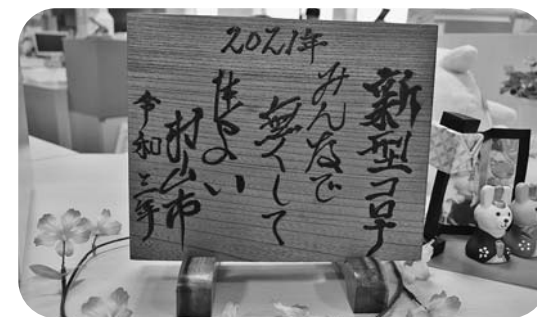 2021年
新型コロナ
みんなで
無くして
住よい
村山市
令和三年